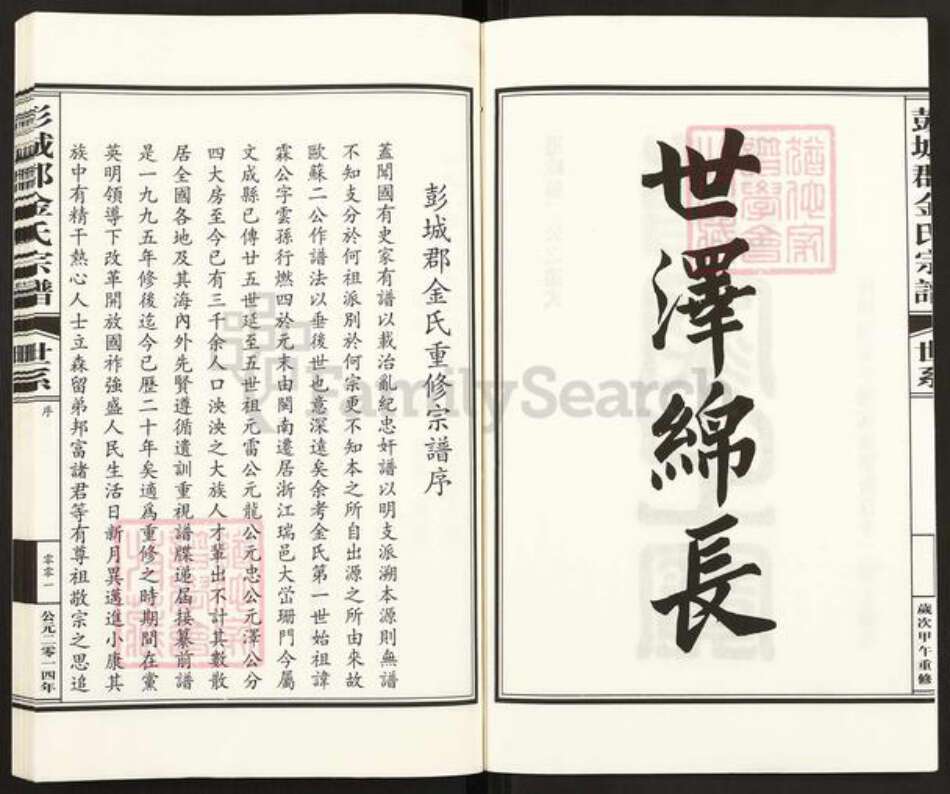 彭城郡金氏宗譜
世系
歲次甲午重修
世澤綿長
彭城郡金氏重修宗譜序
蓋聞國有史家有譜以載治亂紀忠奸譜以明支派溯本源則無譜
不知支分於何祖派別於何宗更不知本之所自出源之所由來故
歐蘇二公作譜法以垂後世也意深遠矣余考金氏第一世始祖諱
霖公字雲孫行燃四於元末由閩南遷居浙江瑞邑大峃珊門今屬
文成縣已傳廿五世延至五世祖元雷公元龍公元忠公元澤公分
四大房至今已有三千余人口泱泱之大族人才輩出不計其數散
居全國各地及其海內外先賢遵循遺訓重視譜牒递屆接纂前譜
是一九九五年修後迄今已歷二十年矣適爲重修之時期間在黨
英明領導下改革開放國祚強盛人民生活日新月異邁進小康其
族中有精干熱心人士立森留弟邦富諸君等有尊祖敬宗之思追
彭城郡金氏宗譜
世系
序
零零一
公元二零一四年
FamilySearch